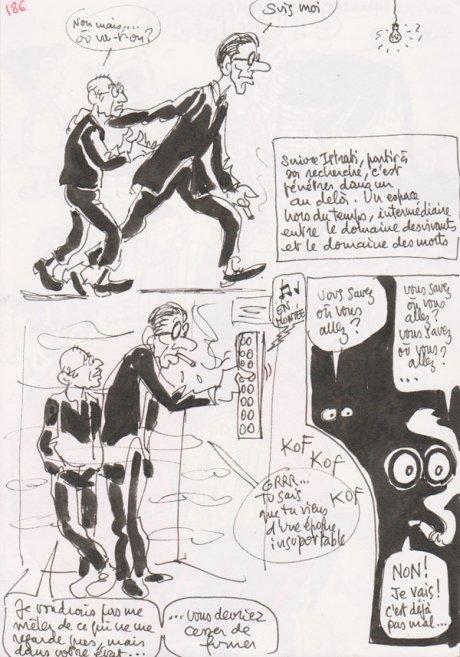 186
Non mais,...
où va-t-on?
Suis moi
Suivre Istrati, partir à
sa recherche, c'est
pénétrer dans un
au delà. Un espace
hors du temps, intermédiaire
entre le domaine des vivants
et le domaine des morts
EN
MONTÉE
vous savez
où vous
allez?
vous savez
où vous
allez?
vous savez
où vous
allez?
...
KOF
KOF
KOF
GRRR...
Tu sais
que tu viens
d'une époque
insupportable
NON!
Je vais!
c'est déjà
pas mal...
Je voudrais pas me
mêler de ce qui ne me
regarde pas, mais
dans votre état...
...vous devriez
cesser de
fumer